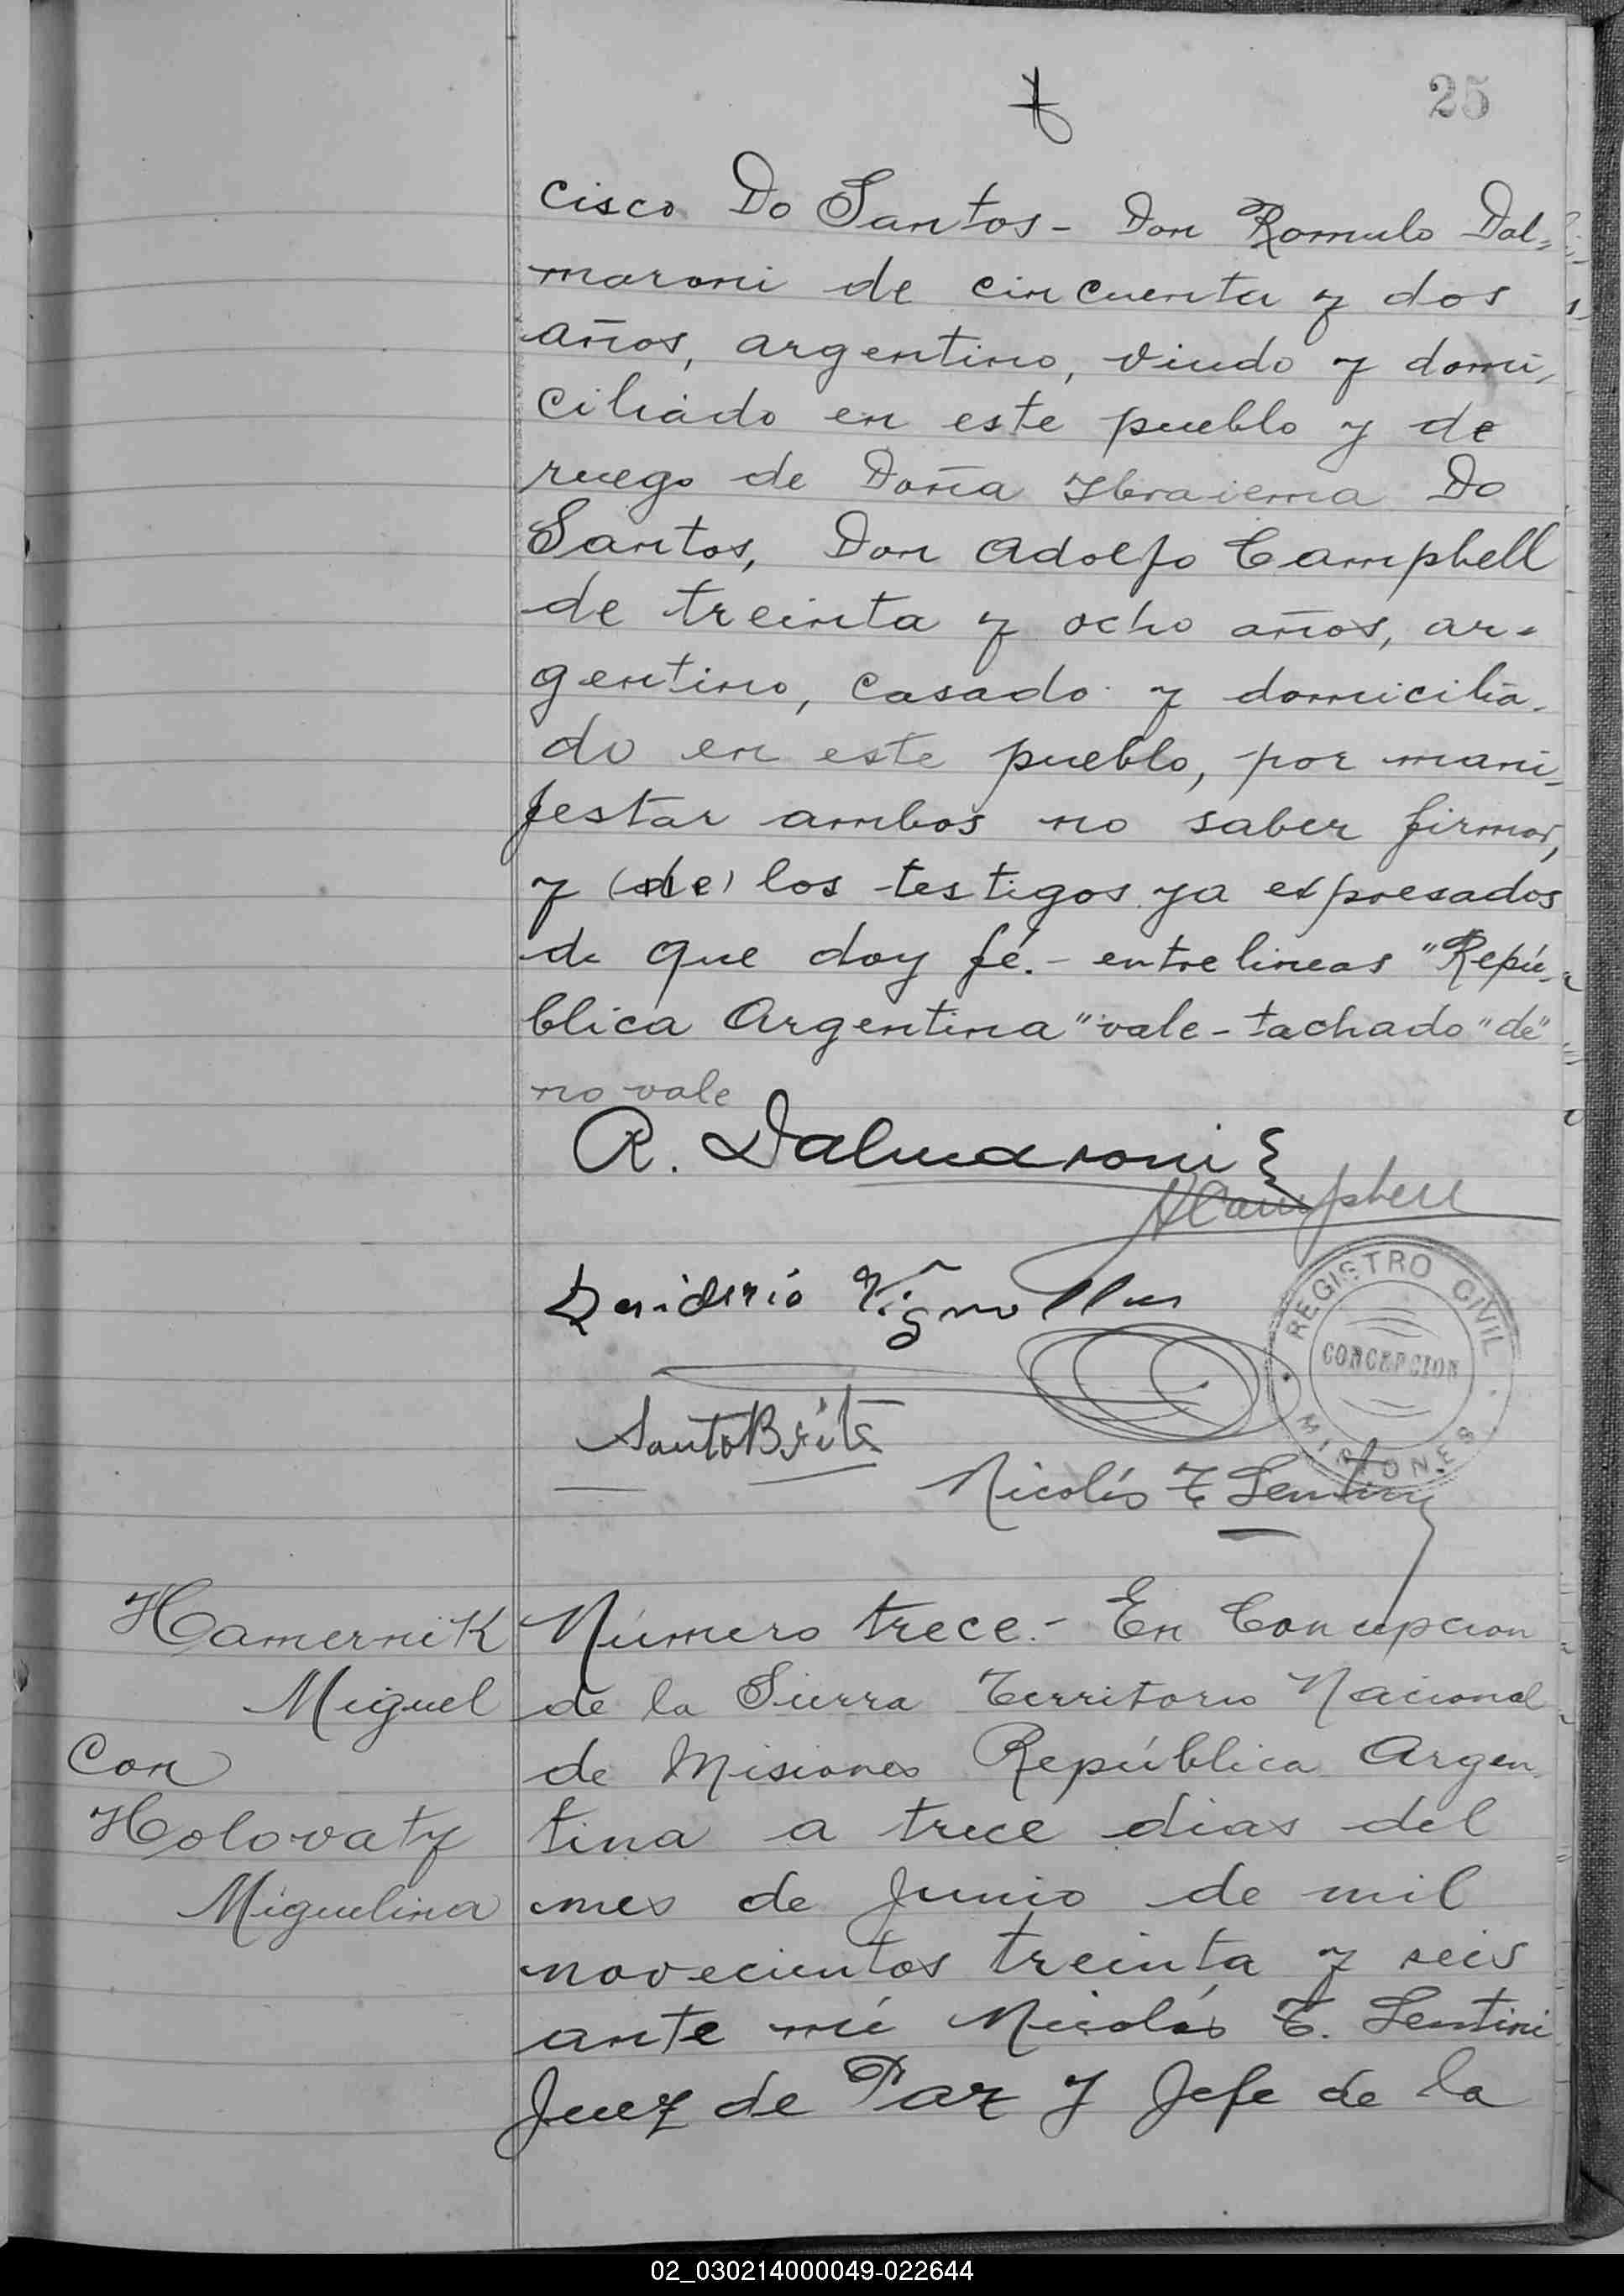 25
cisco Do Santos - Don Romulo Dal=
maroni de cincuenta y dos
años, argentino, viudo y domi-
ciliado en este pueblo y de
ruego de Doña Ybraiema Do
Santos, Don Adolfo Campbell
de treinta y ocho años, ar-
gentino, casado y domicilia-
do en este pueblo, por mani-
festar ambos no saber firmar,
y (de) los testigos ya expresados
de que doy fé. - entre lineas "Repú-
blica Argentina" vale - tachado "de"
no vale
R. Dalmaroni
A Campbell
Desiderio
Santo Brite
REGISTRO CIVIL
CONCEPCION
MISIONES
Nicolás T. Sentini
Hamernik
Miguel
Con
Holovaty
Miguelina
Número trece. - En Concepcion
de la Sierra Territorio Nacional
de Misiones República Argen-
tina a trece dias del
mes de Junio de mil
novecientos treinta y seis
ante mí Nicolás T. Sentini
Juez de Paz y Jefe de la
02_030214000049-022644